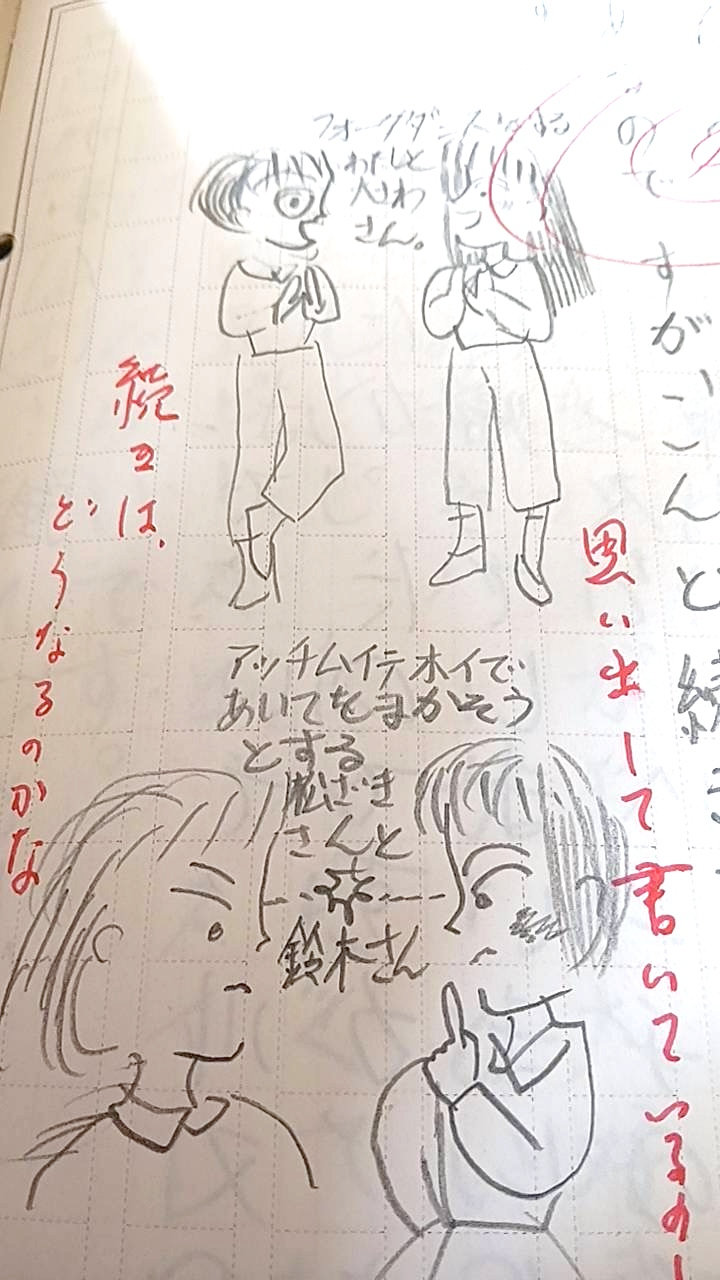 すがごんと続き
思い出して書いているの
フォーグダンスをする
わたしと
さん。
アッチムイテホイで
あいてをまかそう
とする
松ざき
さんと
鈴木さん
続きは、
どうなるのかな